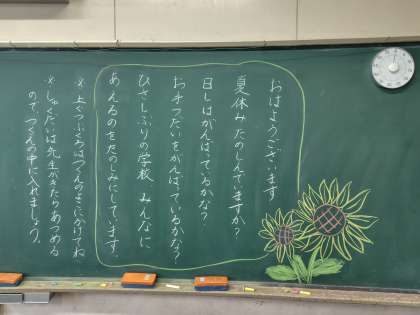 おはようございます
夏休みたのしんでいますか?
日しはがんばっているかな?
お手つだいをがんばっているかな?
ひさしぶりの学校、みんなに
あえるのをたのしみにしています。
※ 上ぐつぶくろはつくえのよこにかけてね
※ しゅくだいは先生がきたらあつめる
ので、つくえの中に入れましょう。